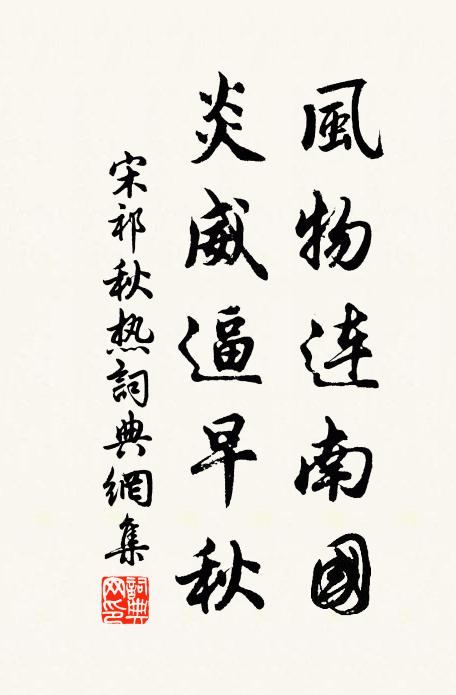 風物連南國
炎威逼早秋
宋祁秋热詞典網集
詞典网印